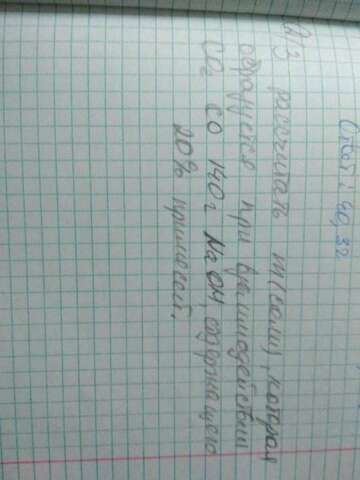 Ответ: 40,32
Д/З рассчитать m(соли), которая
образуется при взаимодействии
CO2 со 140г NaOH, содержащего
20% примесей.